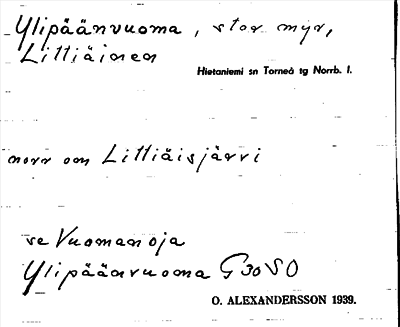 Ylipäänvuoma, stor myr,
Littiäinen
Hietaniemi sn Torneå tg Norrb. l.
norr om Littiäisjärvi
se Vuomanoja
Ylipäänvuoma G30SO
O. ALEXANDERSSON 1939.